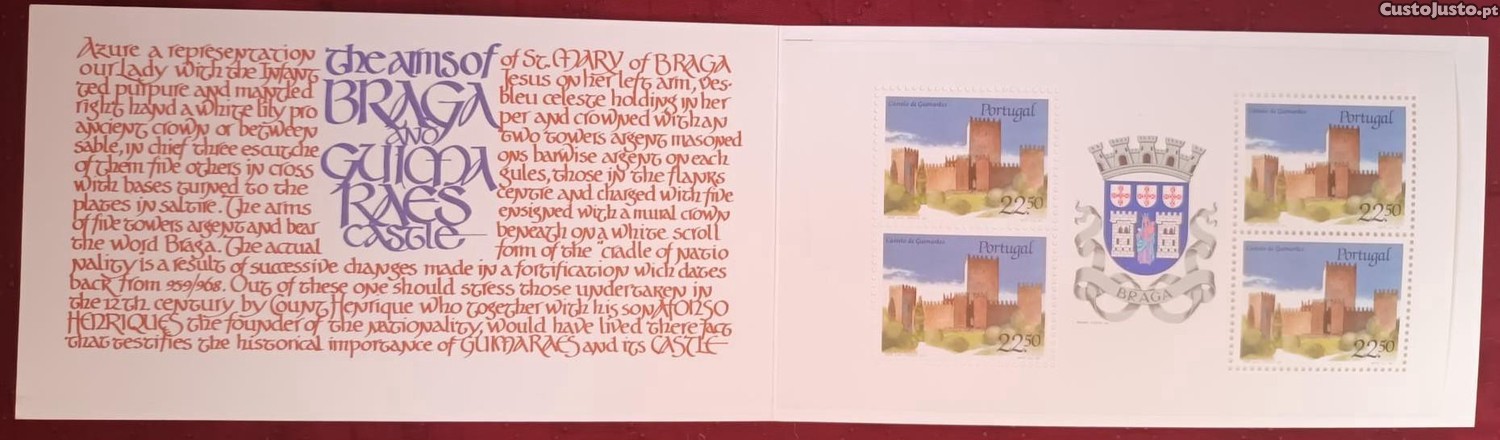 CustoJusto.pt
Azure a representation of St. MARY of BRAGA
our Lady with the Infant Jesus on her left arm, ves-
ted purpure and mantled bleu celeste holding in her
right hand a white lily pro per and crowned with an
ancient crown or between two towers argent masoned
sable, in chief three escutche ons barwise argent on each
of them five others in cross gules, those in the flanks
with bases turned to the centre and charged with five
plates in saltire. The arms ensigned with a mural crown
of five towers argent and bear beneath on a white scroll
the word Braga. The actual form of the "cradle of natio
nality is a result of successive changes made in a fortification wich dates
back from 959/968. Out of these one should stress those undertaken in
the 12th century by Count Henrique who together with his son AFONSO
HENRIQUES the founder of the nationality, would have lived there fact
that testifies the historical importance of GUIMARAES and its CASTLE
the arms of
BRAGA
AND
GUIMA
RAES
CASTLE
Castelo de Guimarães
Portugal
22.50
Castelo de Guimarães
Portugal
22.50
BRAGA
Castelo de Guimarães
Portugal
22.50
Castelo de Guimarães
Portugal
22.50